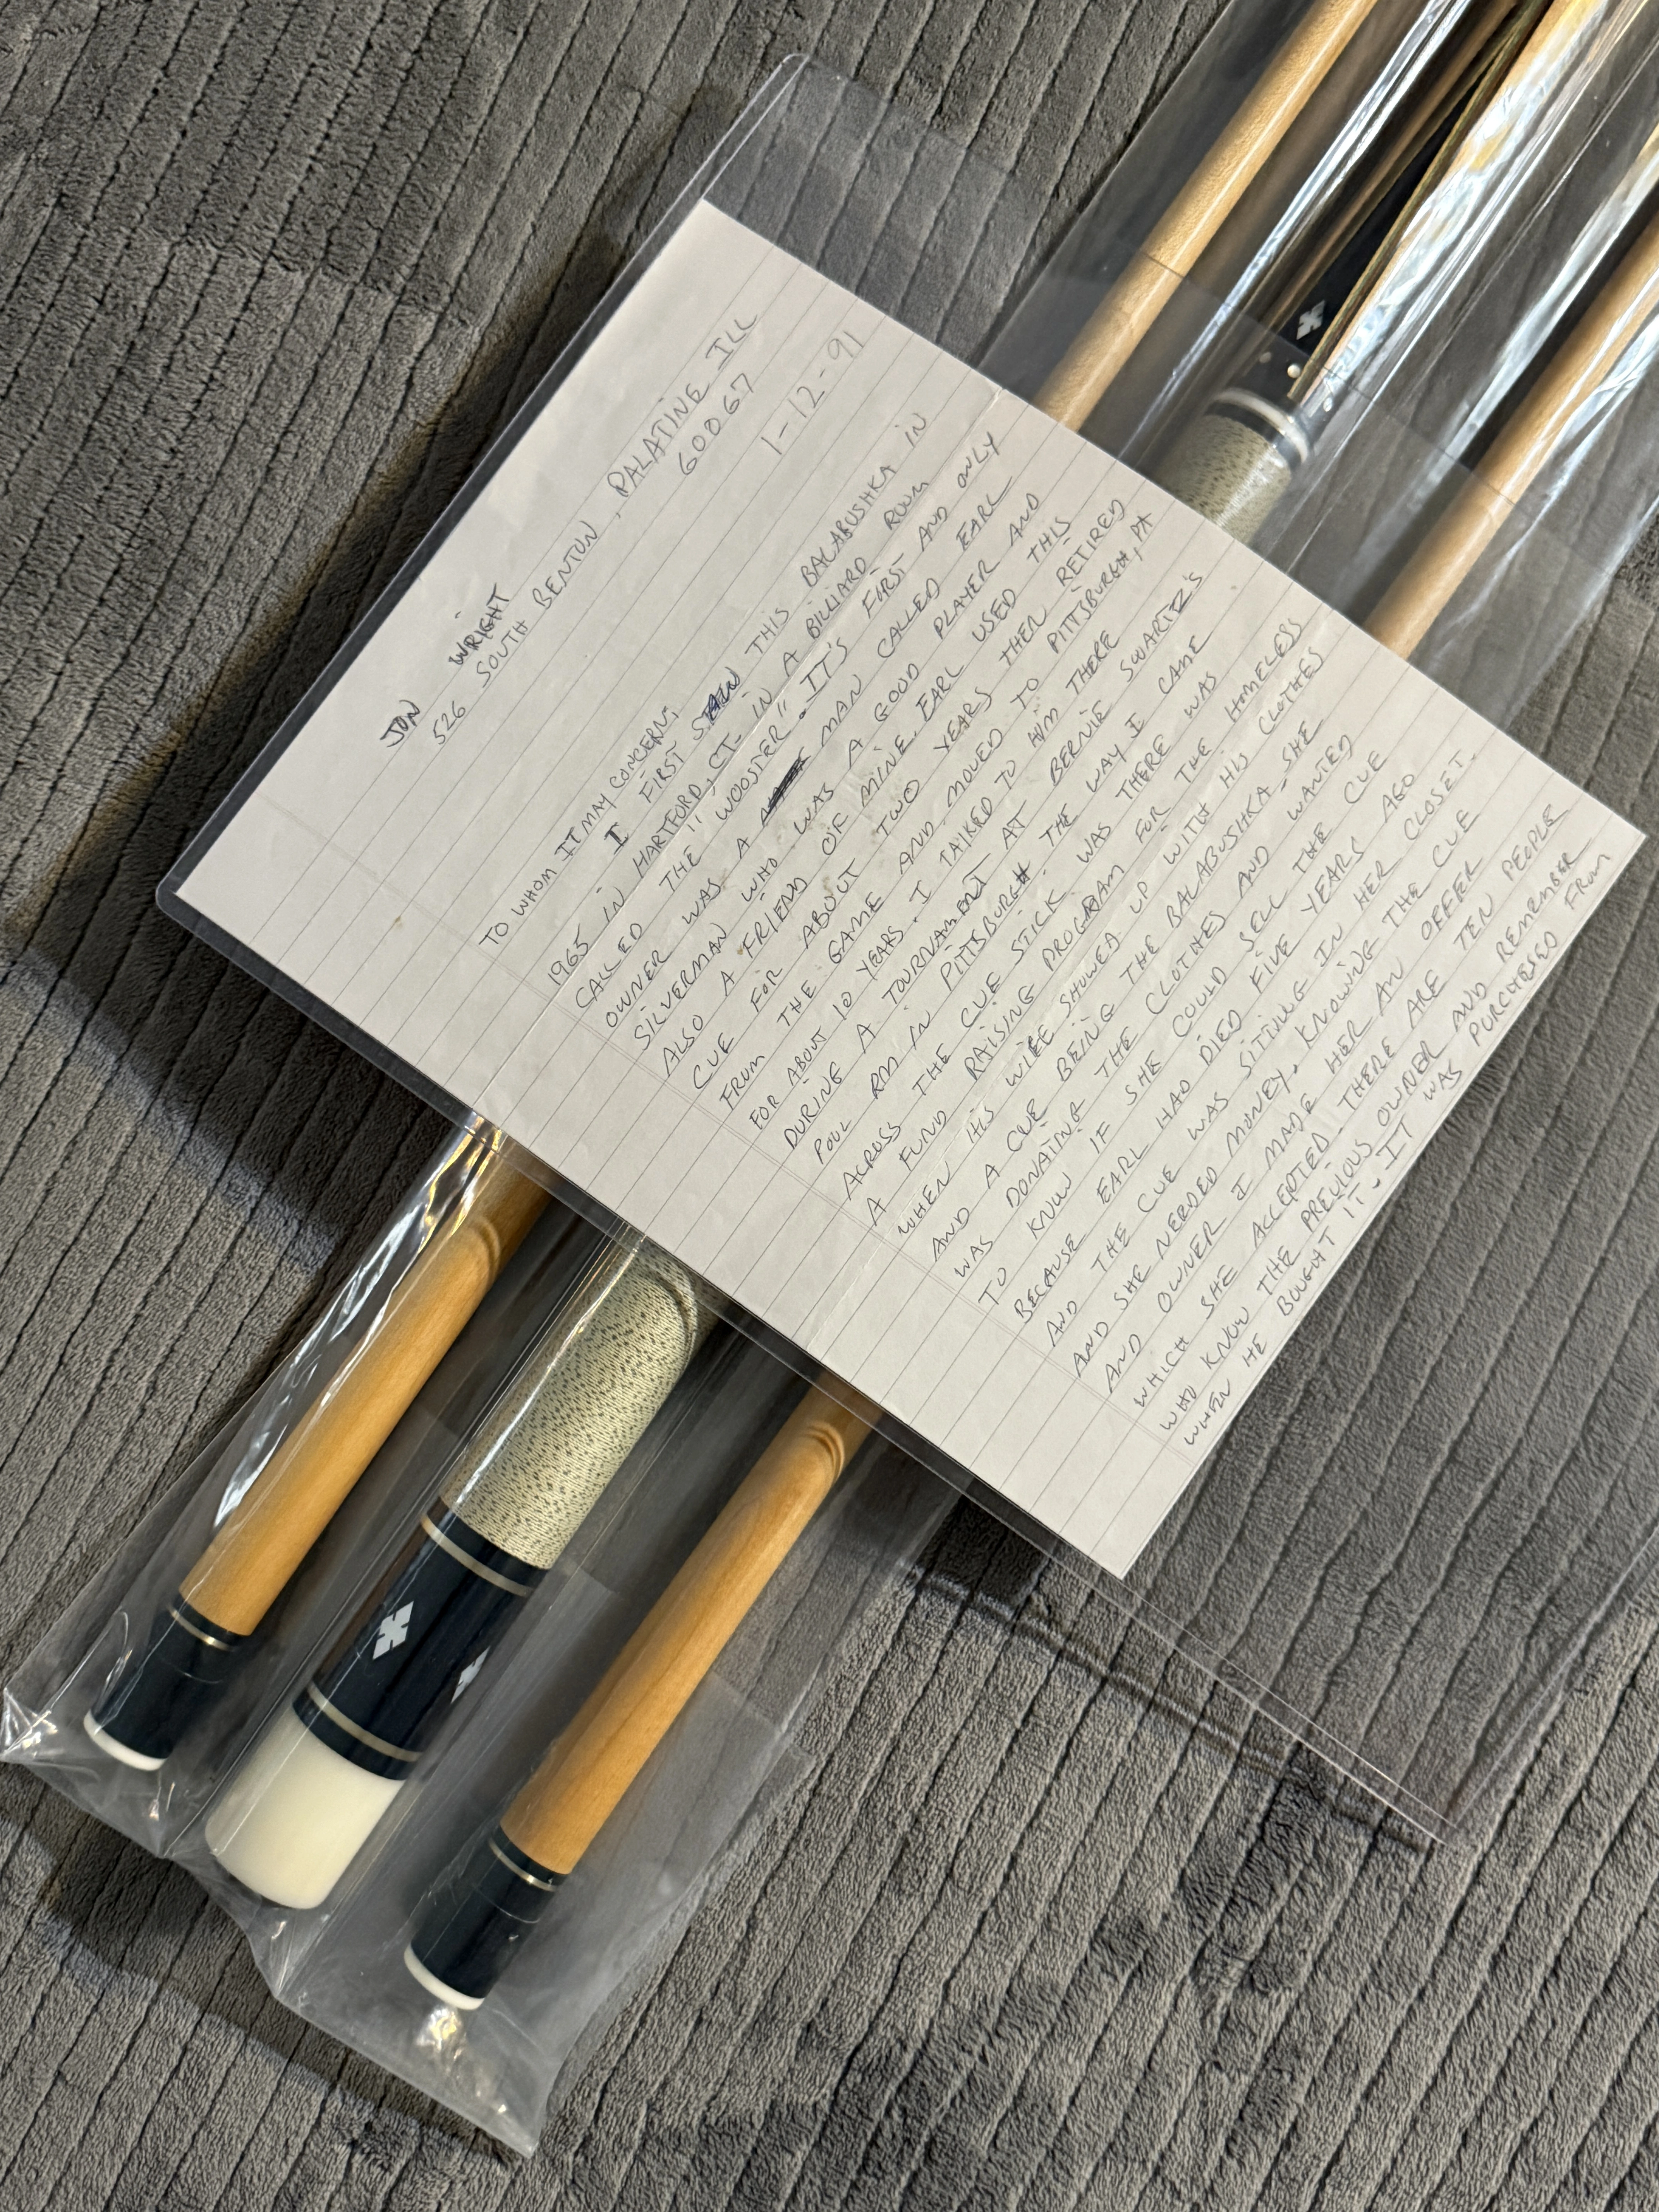 JON WRIGHT
526 SOUTH BENTON, PALATINE ILL
60067
1-12-91
TO WHOM IT MAY CONCERN;
I FIRST SAW THIS BALABUSHKA IN
1965 IN HARTFORD, CT- IN A BILLIARD ROOM
CALLED THE "WOOSTER". IT'S FIRST AND ONLY
OWNER WAS A MAN CALLED EARL
SILVERMAN WHO WAS A GOOD PLAYER AND
ALSO A FRIEND OF MINE. EARL USED THIS
CUE FOR ABOUT TWO YEARS THEN RETIRED
FROM THE GAME AND MOVED TO PITTSBURGH, PA
FOR ABOUT 10 YEARS. I TALKED TO HIM THERE
DURING A TOURNAMENT AT BERNIE SWARTZ'S
POOL RM IN PITTSBURGH. THE WAY I CAME
ACROSS THE CUE STICK WAS THERE WAS
A FUND RAISING PROGRAM FOR THE HOMELESS
WHEN HIS WIFE SHOWED UP WITH HIS CLOTHES
AND A CUE BEING THE BALABUSHKA. SHE
WAS DONATING THE CLOTHES AND WANTED
TO KNOW IF SHE COULD SELL THE CUE
BECAUSE EARL HAD DIED FIVE YEARS AGO
AND THE CUE WAS SITTING IN HER CLOSET.
AND SHE NEEDED MONEY. KNOWING THE CUE
AND OWNER I MADE HER AN OFFER
WHICH SHE ACCEPTED. THERE ARE TEN PEOPLE
WHO KNOW THE PREVIOUS OWNER AND REMEMBER
WHEN HE BOUGHT IT. IT WAS PURCHESED FROM